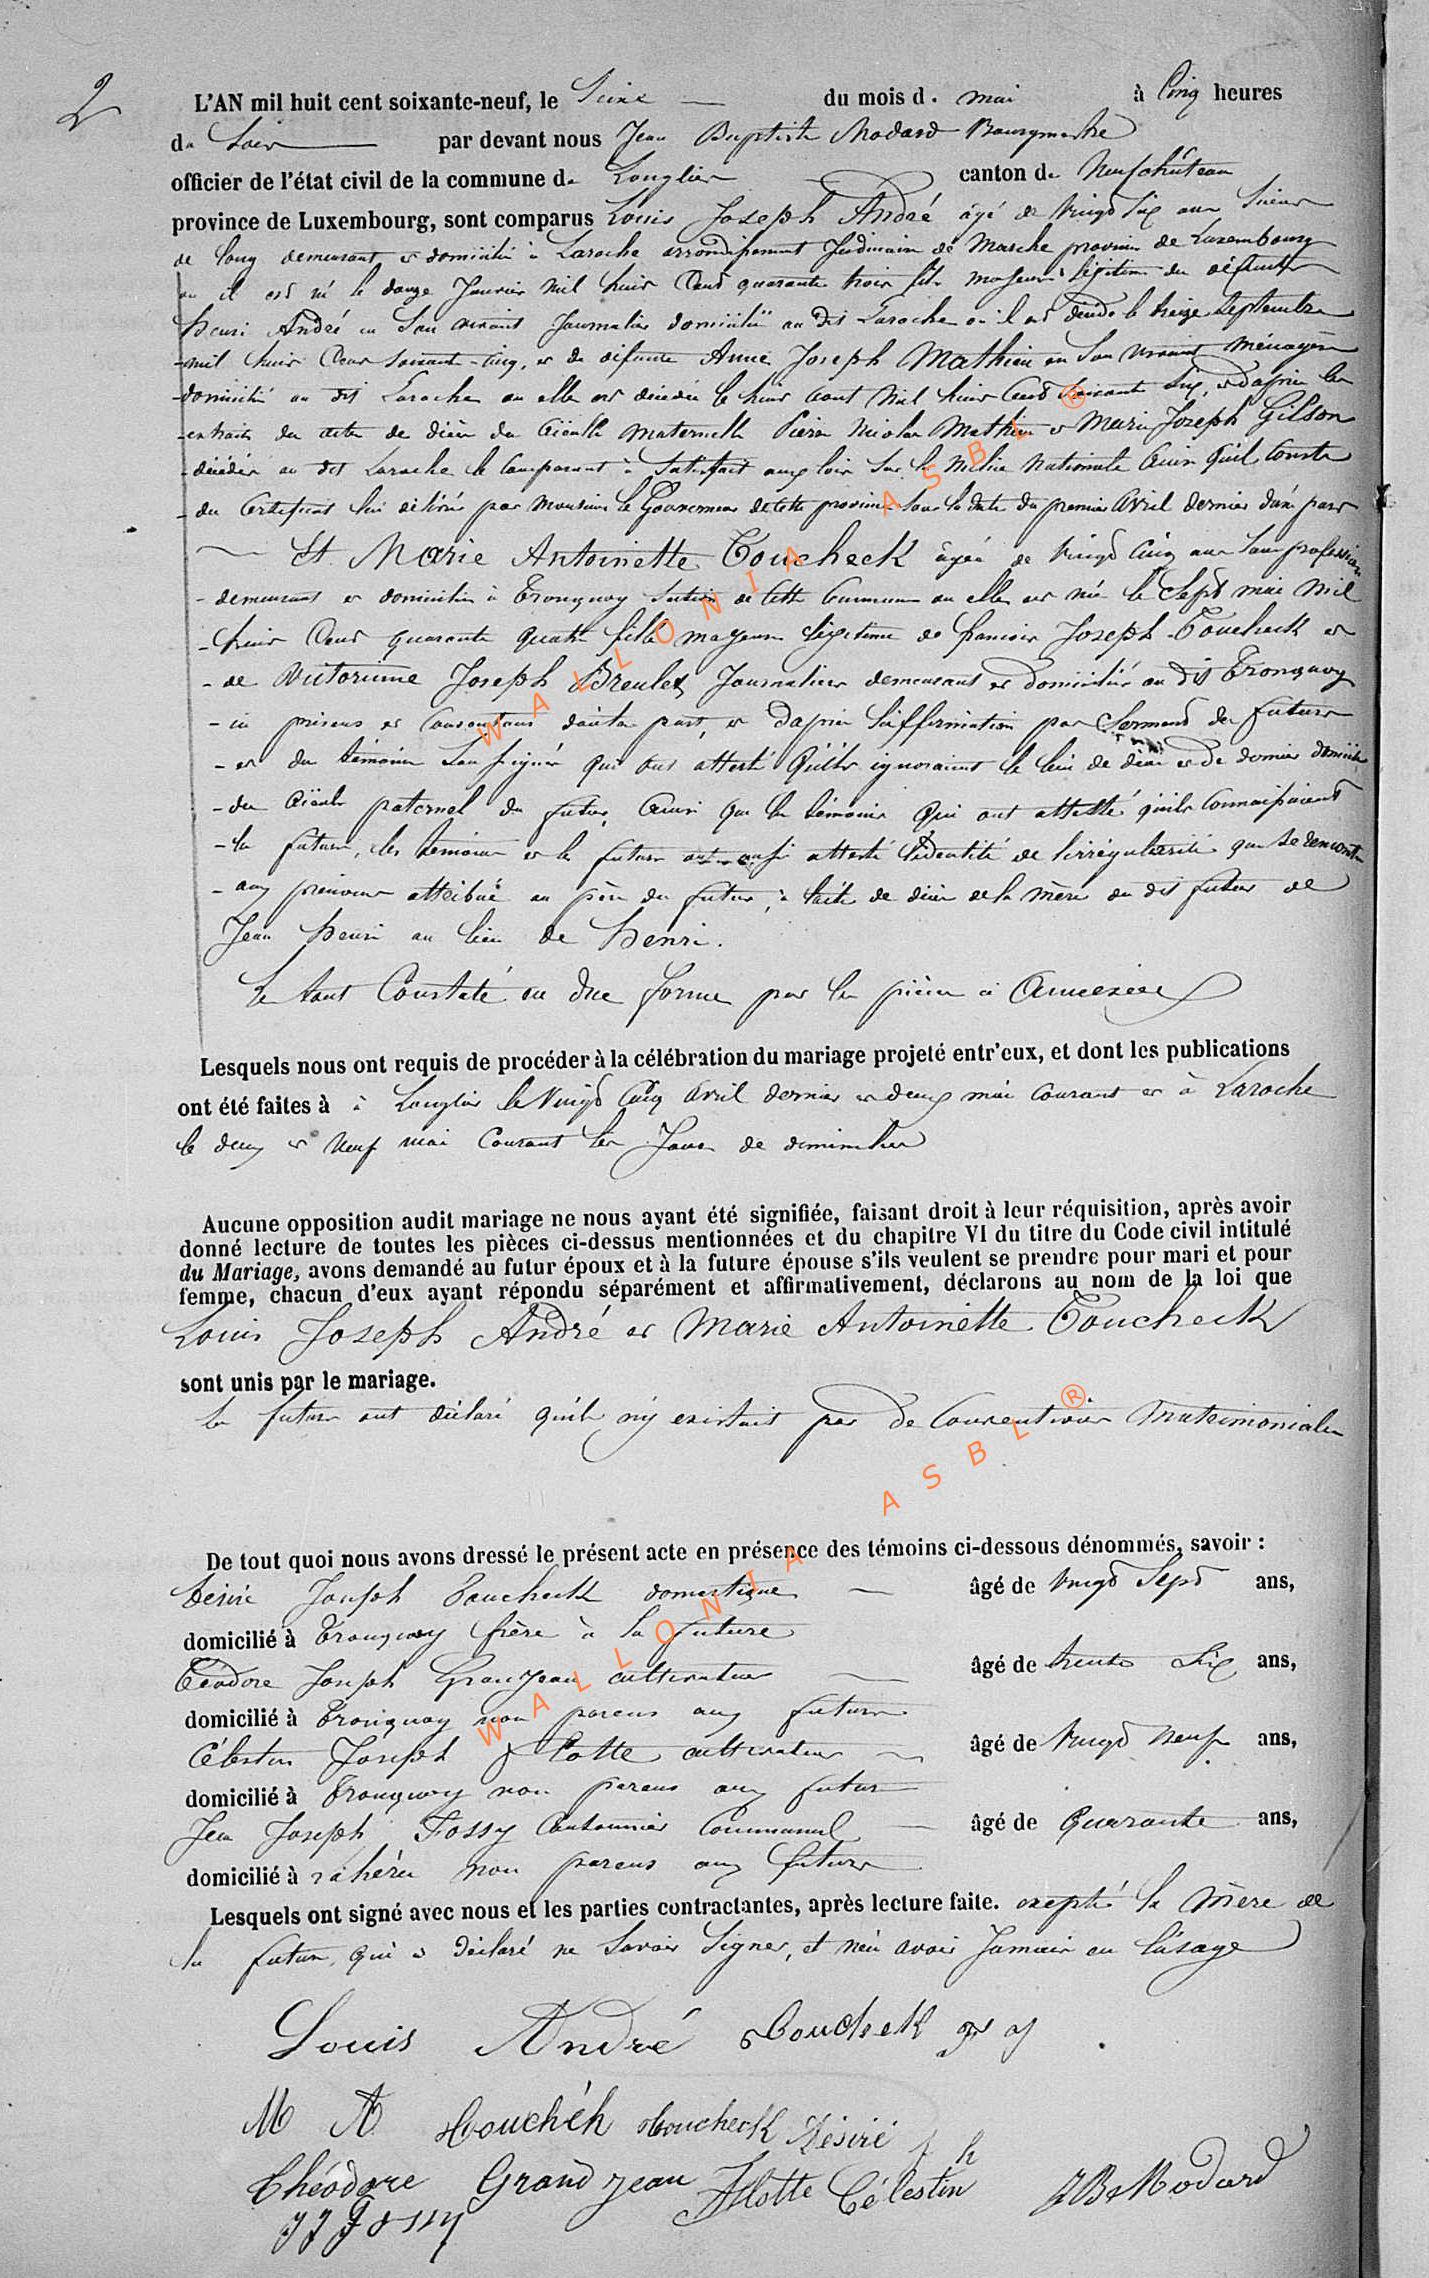 2
L'AN mil huit cent soixante-neuf, le Seize du mois d. mai à Cinq heures
du Soir par devant nous Jean Baptiste Modard Bourgmestre
officier de l'état civil de la commune de Longlier canton de Neufchâteau
province de Luxembourg, sont comparus Louis Joseph André âgé de Vingt Six ans Scieur
de long demeurant et domicilié à Laroche arrondissement Judiciaire de Marche province de Luxembourg
ou il est né le douze Janvier mil huit Cent quarante trois fils majeur et légitime du défunt
Henri André en Son vivant Journalier domicilié au dit Laroche où il est décédé le treize Septembre
mil huit Cent soixante-cinq, et de défunte Anne Joseph Mathieu en Son vivant ménagère
domicilié au dit Laroche ou elle est décédée le huit aout Mil huit Cent Soixante Six, et d'après les
extraits des actes de décès des aïeuls maternels Pierre Nicolas Mathieu et Marie Joseph Gilson
décédés au dit Laroche le Comparant à Satisfait aux lois Sur la Milice Nationale Ainsi qu'il Conste
du Certificat lui délivré par Monsieur le Gouverneur de cette province Sous la date du premier Avril dernier d'une part
Et Marie Antoinette Toucheck âgée de Vingt Cinq ans Sans profession
demeurant et domiciliée à Tronquoy Section de Cette Commune ou elle est née le Sept mai Mil
huit Cent quarante quatre fille majeure légitime de françois Joseph Toucheck et
de Victorinne Joseph Breulet Journaliers demeurant et Domiciliés au dit Tronquoy
ici présens et Consentans d'autre part, et d'après l'affirmation par Serment des futurs
et des témoins Soussignés qui ont attesté Qu'ils ignoraient le lieu de décès et de dernier domicile
des aïeuls paternel du futur, Ainsi que les témoins Qui ont attesté qu'ils Connaissaient
les futurs, les témoins et les futurs ont aussi attesté l'identité de l'irrégularité qui Se rencontre
aux prénoms attribué au père du futur, à l'acte de décès de la mère du dit futur de
Jean Henri au lieu de Henri.
Le tout Constaté en due forme par les pièces ci Annexées
Lesquels nous ont requis de procéder à la célébration du mariage projeté entr'eux, et dont les publications
ont été faites à à Longlier le Vingt Cinq Avril dernier et deux mai Courant et à Laroche
le deux et Neuf mai Courant les Jours de dimanches
Aucune opposition audit mariage ne nous ayant été signifiée, faisant droit à leur réquisition, après avoir
donné lecture de toutes les pièces ci-dessus mentionnées et du chapitre VI du titre du Code civil intitulé
du Mariage, avons demandé au futur époux et à la future épouse s'ils veulent se prendre pour mari et pour
femme, chacun d'eux ayant répondu séparément et affirmativement, déclarons au nom de la loi que
Louis Joseph André et Marie Antoinette Toucheck
sont unis par le mariage.
Les futurs ont déclaré qu'ils n'y existait pas de Conventions Matrimoniales
De tout quoi nous avons dressé le présent acte en présence des témoins ci-dessous dénommés, savoir :
Désiré Joseph Toucheck domestique âgé de Vingt Sept ans,
domicilié à Tronquoy frère à la future
Téodore Joseph Granjean cultivateur âgé de trente Six ans,
domicilié à Tronquoy non parens aux futurs
Célestin Joseph Flotte cultivateur âgé de Vingt Neuf ans,
domicilié à Tronquoy non parens aux futurs
Jean Joseph Fossy Cantonnier Communal âgé de Quarante ans,
domicilié à Lahérie non parens aux futurs
Lesquels ont signé avec nous et les parties contractantes, après lecture faite. excepté la Mère de
la future, qui a Déclaré ne Savoir Signer, et n'en avoir Jamais eu l'usage
Louis André Toucheck
M A Touchék Toucheck Désiré
Théodore Grandjean Flotte Célestin JBte Modard
JJ Fossy
WALLONIA ASBL ®
WALLONIA ASBL ®